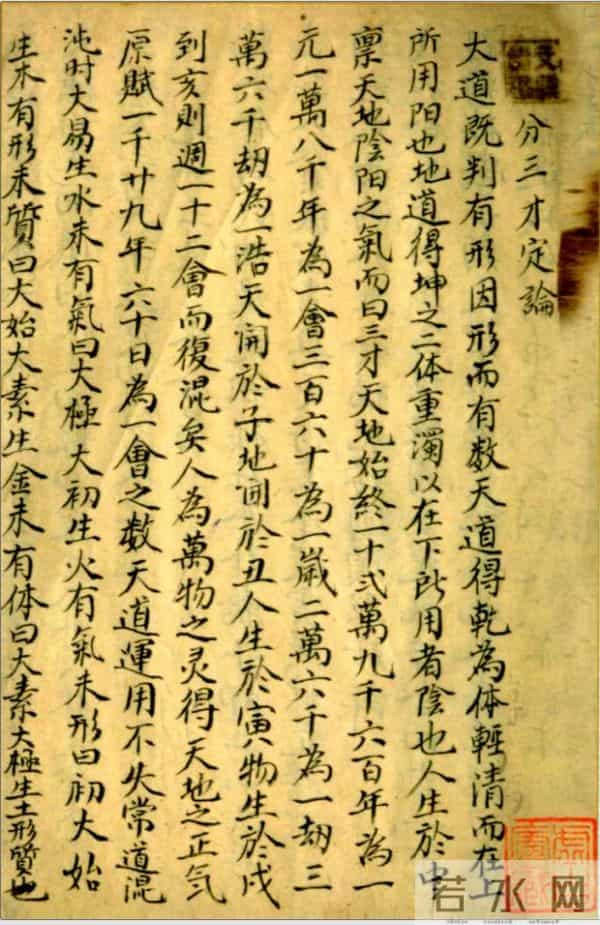 分三才定論
大道既判有形因形而有数天道得乾為体輕清而在上
所用阳也地道得坤之二体重濁以在下所用者陰也人生於中
禀天地陰阳之氣而曰三才天地始終一十弍萬九千六百年為一
元一萬八千年為一會三百六十為一嵗二萬六千為一劫三
萬六千劫為一浩天開於子地開於丑人生於寅物生於戌
到亥則週一十二會而復混矣人為萬物之灵得天地之正氣
原賦一千廿九年六十日為一會之数天道運用不失常道混
沌时大易生水未有氣曰大極大初生火有氣未形曰初大始
生木有形未質曰大始大素生金未有体曰大素大極生土形質也
若水网